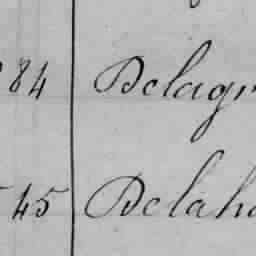 84 Delagr
45 Delaha